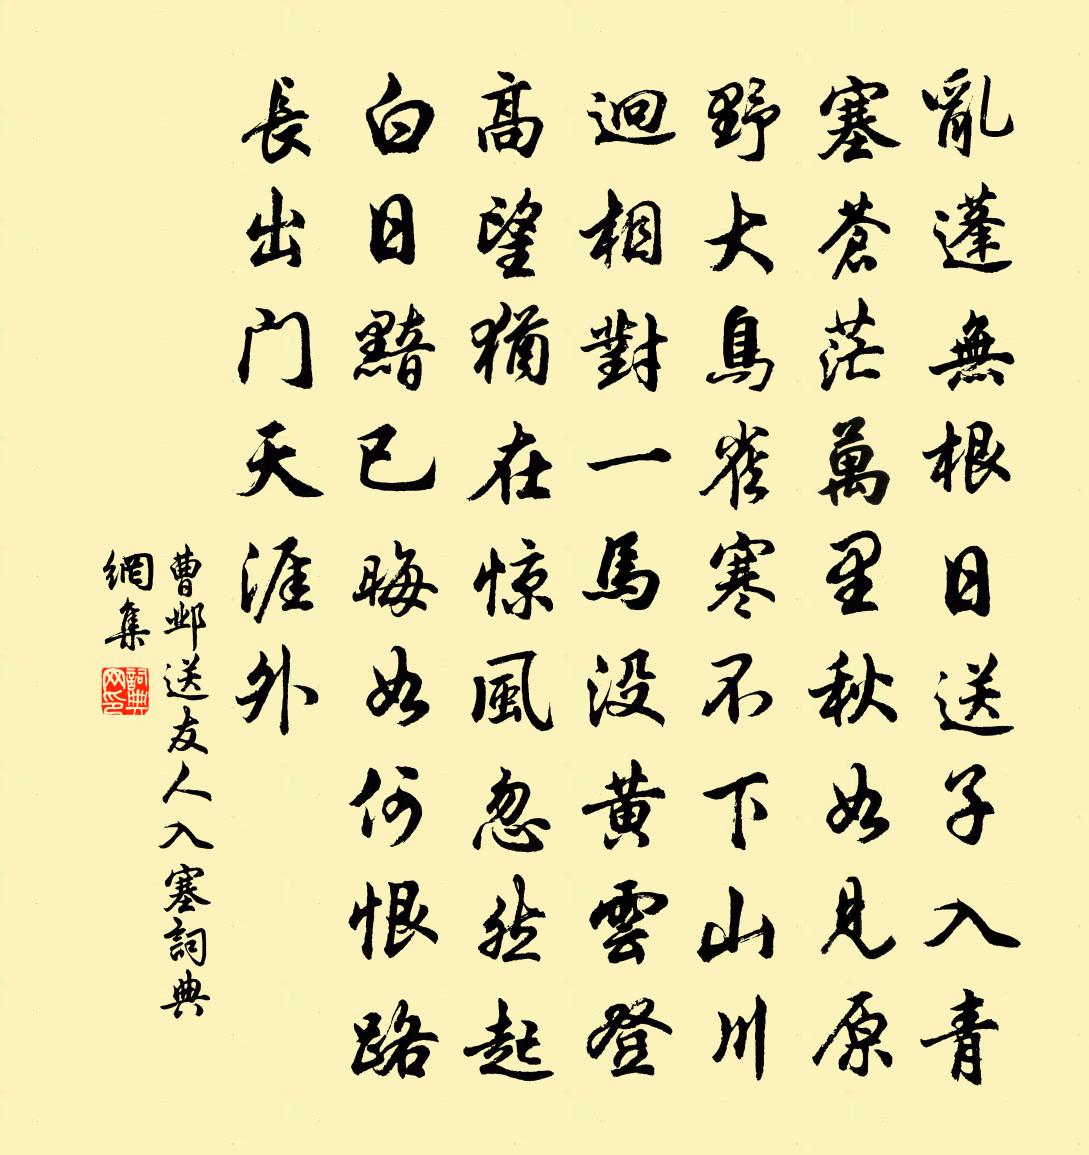 亂蓬無根日送子入青
塞蒼茫萬里秋如見原
野大鳥雀寒不下山川
迥相對一馬没黃雲登
高望猶在惊風忽然起
白日黯已晦如何恨路
長出门天涯外
曹邺送友人入塞詞典
網集
詞典
网印